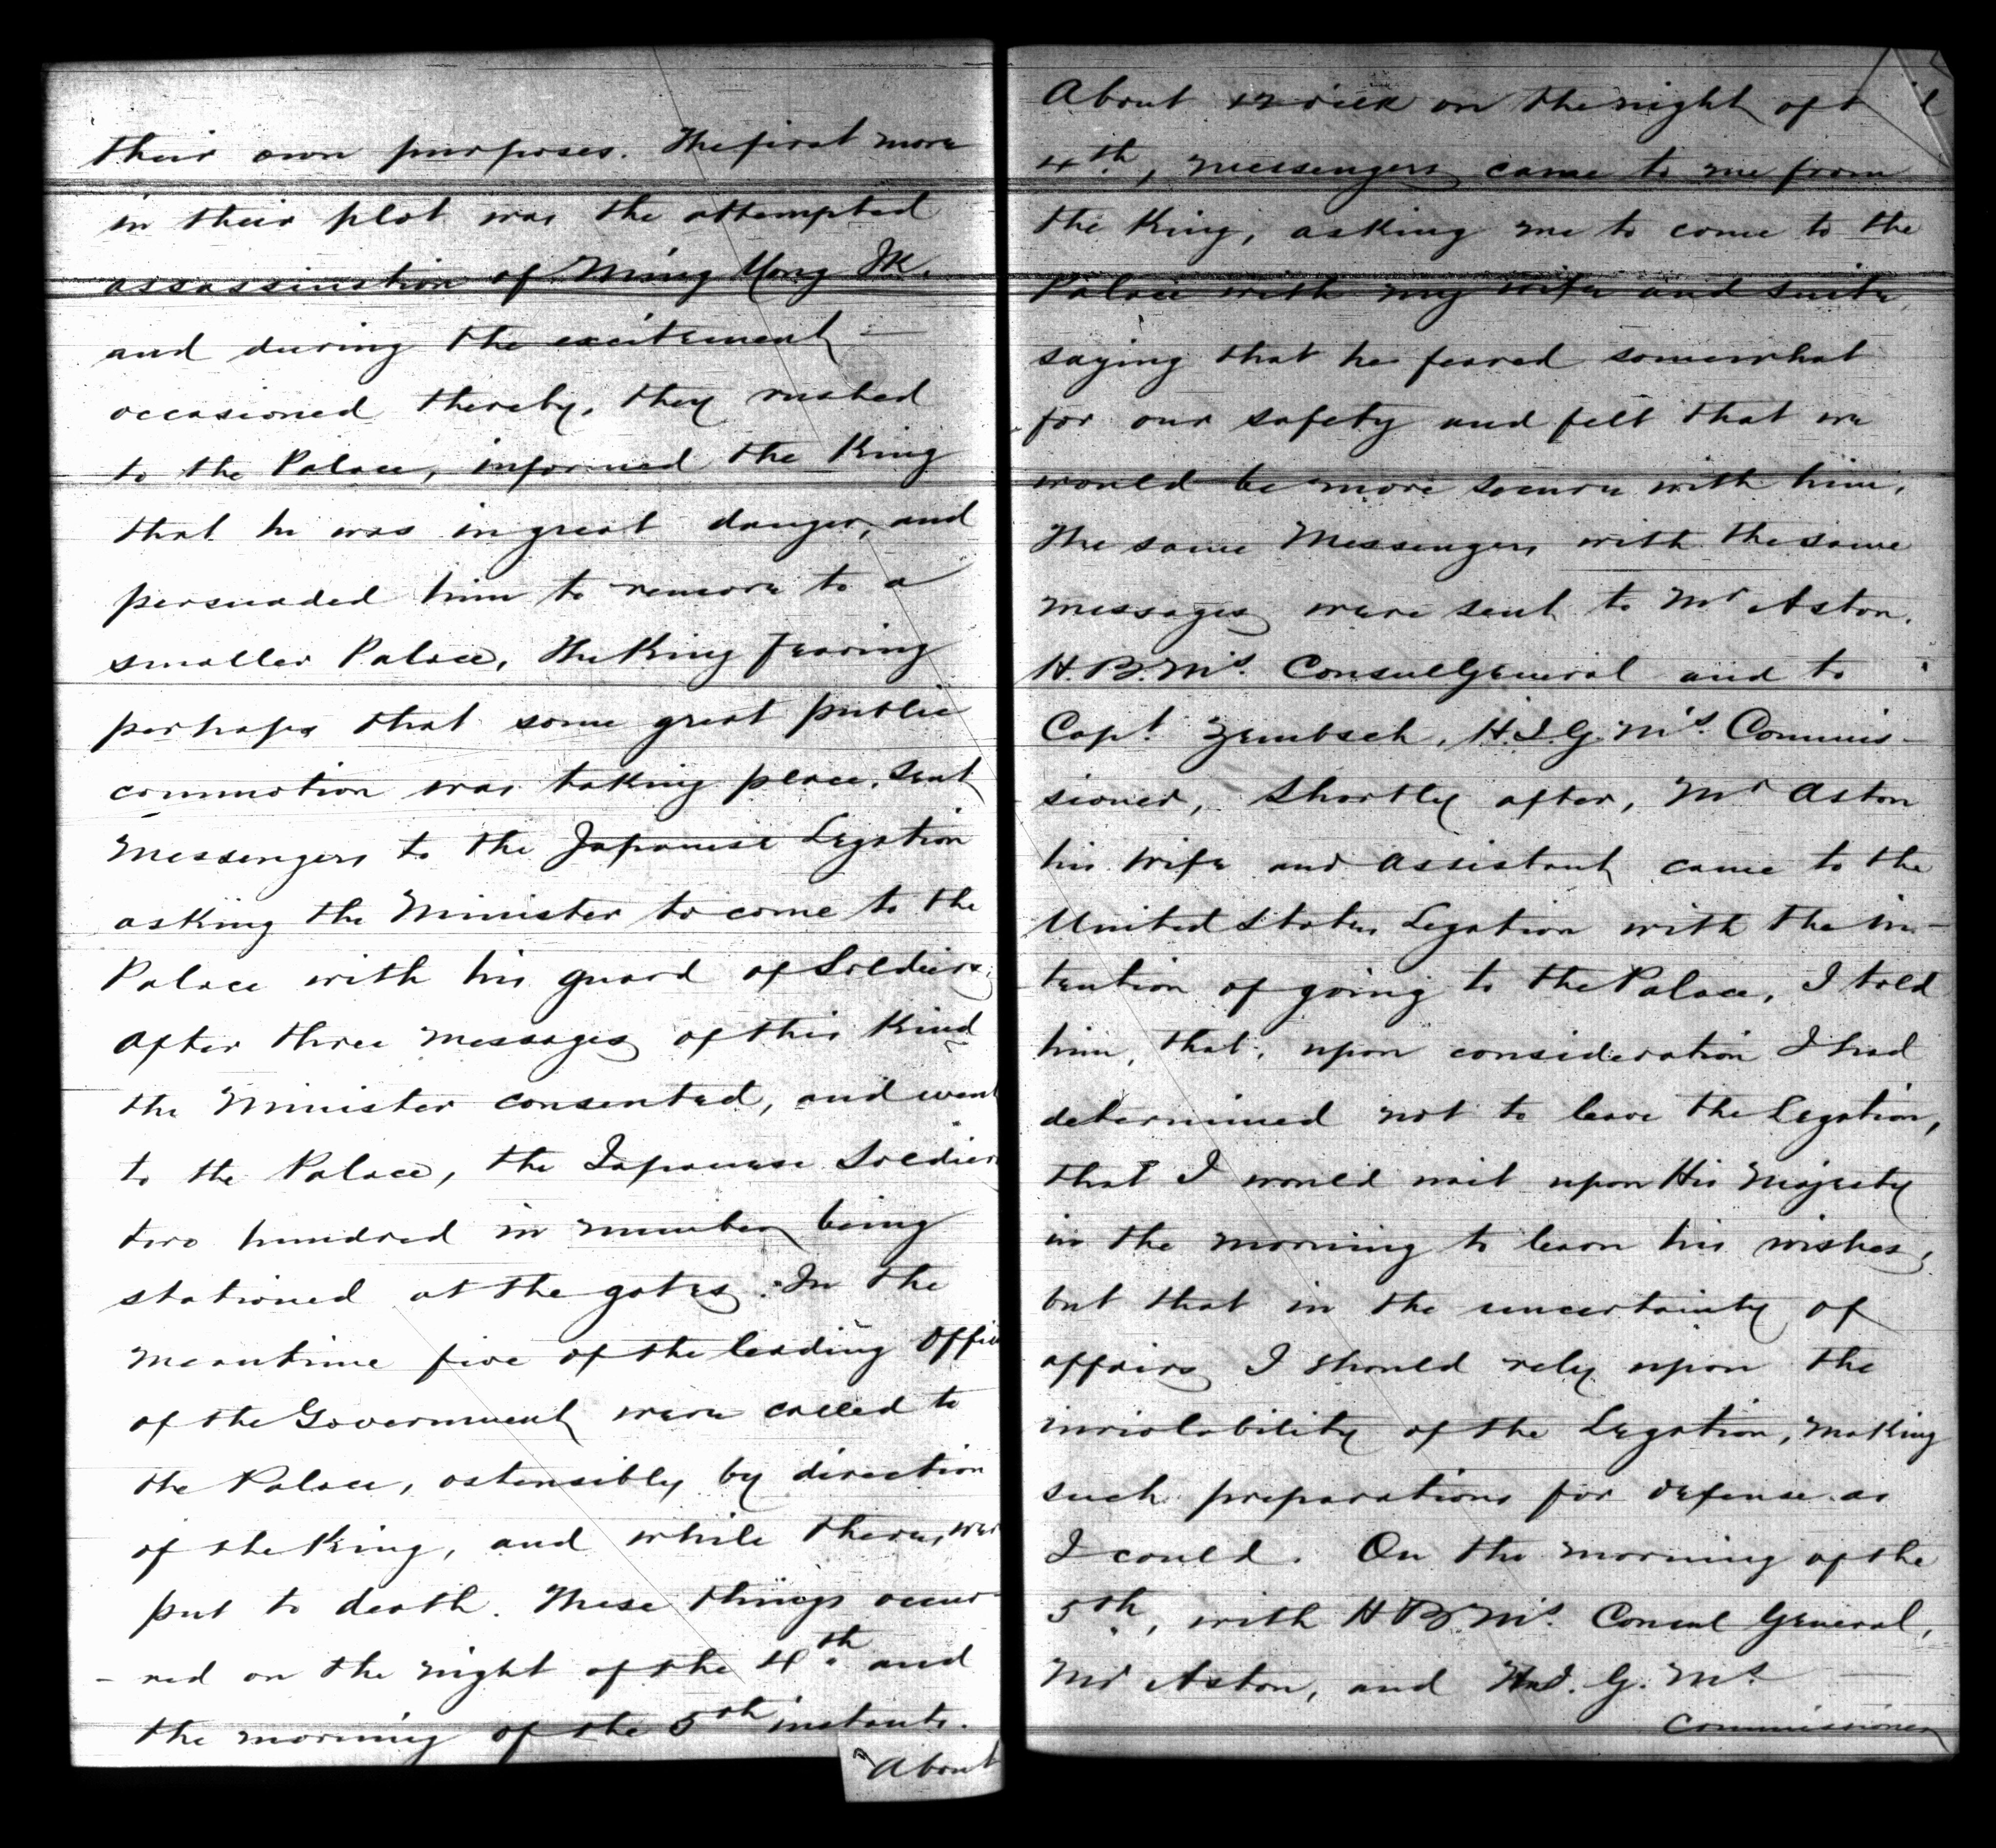 their own purposes. The first move
in their plot was the attempted
assassination of Ming Yong Ik.
and during the excitement —
occasioned thereby, they rushed
to the Palace, informed the King
that he was in great danger, and
persuaded him to remove to a
smaller Palace, the King fearing
perhaps that some great public
commotion was taking place, sent
messengers to the Japanese Legation
asking the Minister to come to the
Palace with his guard of Soldiers;
after three messages of this kind
the Minister consented, and went
to the Palace, the Japanese Soldiers
two hundred in number being
stationed at the gates. In the
meantime five of the leading
of the Government were called to
the Palace, ostensibly by direction
of the King, and while there, were
put to death. These things occur-
-red on the night of the 4th and
the morning of the 5th instant.
About
About on the night of
4th, messengers came to me from
the King, asking me to come to the
Palace with my wife and suite,
saying that he feared somewhat
for our safety and felt that we
would be more secure with him.
The same Messengers with the same
messages were sent to Mr Aston.
H.B.M's. Consul General and to
Capt. Zembsch, H.I.G.M's. Commis-
sioner, Shortly after, Mr Aston
his wife and assistant came to the
United States Legation with the in-
tention of going to the Palace, I told
him, that, upon consideration I had
determined not to leave the Legation,
that I would wait upon His Majesty
in the morning to learn his wishes,
but that in the uncertainty of
affairs I should rely upon the
inviolability of the Legation, making
such preparations for defense as
I could. On the morning of the
5th, with H B M's. Consul General,
Mr Aston, and H.I.G.M's
Commissioner